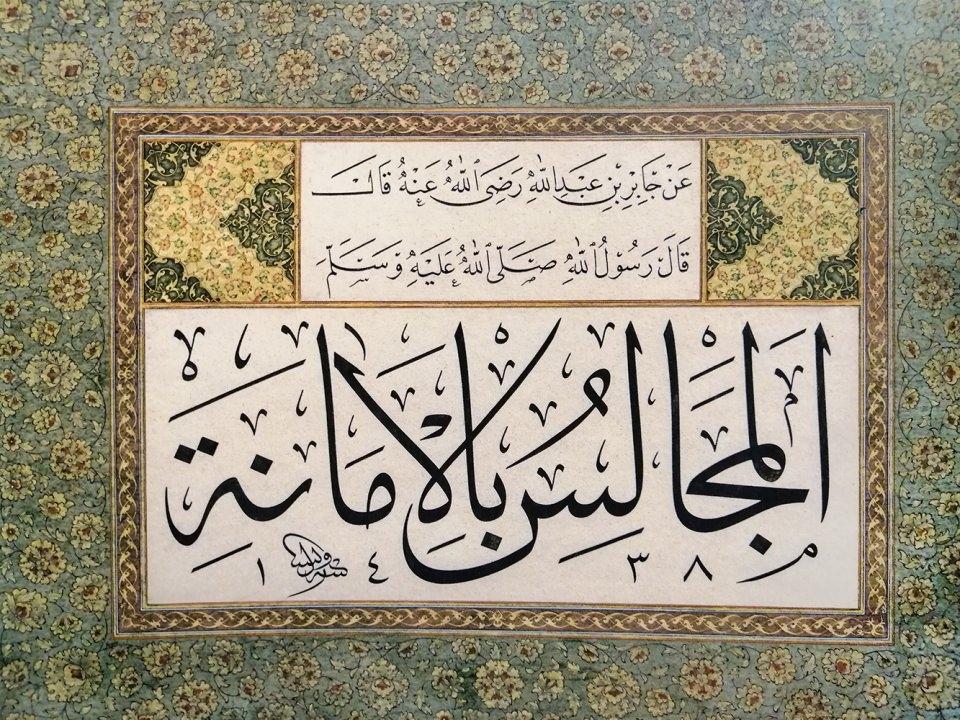 عَنْ جَابِرِ بْنِ عَبْدِ اللّٰهِ رَضِىَ اللّٰهُ عَنْهُ قَالَ
قَالَ رَسُولُ اللّٰهِ صَلَّى اللّٰهُ عَلَيْهِ وَسَلَّمَ
اَلْمَجَالِسُ بِالْاَمَانَةِ
١٤٣٨